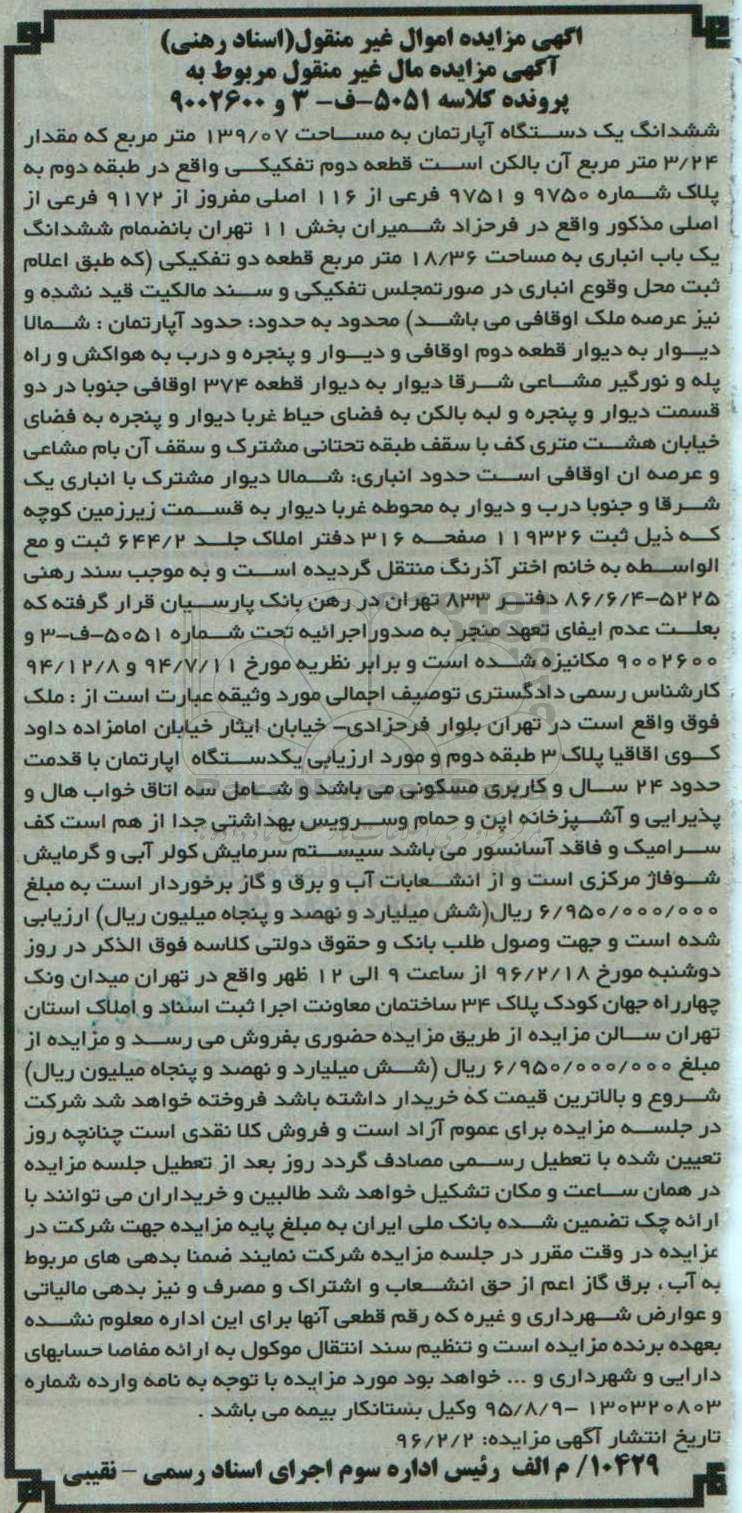 آگهی مزایده اموال غیر منقول(اسناد رهنی)
آگهی مزایده مال غیر منقول مربوط به
پرونده کلاسه ۵۰۵۱-ف- ۳ و ۹۰۰۲۶۰۰
ششدانگ یک دستگاه آپارتمان به مساحت ۱۳۹/۰۷ متر مربع که مقدار
۳/۲۴ متر مربع آن بالکن است قطعه دوم تفکیکی واقع در طبقه دوم به
پلاک شماره ۹۷۵۰ و ۹۷۵۱ فرعی از ۱۱۶ اصلی مفروز از ۹۱۷۲ فرعی از
اصلی مذکور واقع در فرحزاد شمیران بخش ۱۱ تهران بانضمام ششدانگ
یک باب انباری به مساحت ۱۸/۳۶ متر مربع قطعه دو تفکیکی (که طبق اعلام
ثبت محل وقوع انباری در صورتمجلس تفکیکی و سند مالکیت قید نشده و
نیز عرصه ملک اوقافی می باشد) محدود به حدود: حدود آپارتمان : شمالا
دیوار به دیوار قطعه دوم اوقافی و دیوار و پنجره و درب به هواکش و راه
پله و نورگیر مشاعی شرقا دیوار به دیوار قطعه ۳۷۴ اوقافی جنوبا در دو
قسمت دیوار و پنجره و لبه بالکن به فضای حیاط غربا دیوار و پنجره به فضای
خیابان هشت متری کف با سقف طبقه تحتانی مشترک و سقف آن بام مشاعی
و عرصه ان اوقافی است حدود انباری: شمالا دیوار مشترک با انباری یک
شرقا و جنوبا درب و دیوار به محوطه غربا دیوار به قسمت زیرزمین کوچه
که ذیل ثبت ۱۱۹۳۲۶ صفحه ۳۱۶ دفتر املاک جلد ۶۴۴/۲ ثبت و مع
الواسطه به خانم اختر آذرنگ منتقل گردیده است و به موجب سند رهنی
۵۲۲۵-۸۶/۶/۴ دفتر ۸۳۳ تهران در رهن بانک پارسیان قرار گرفته که
بعلت عدم ایفای تعهد منجر به صدوراجرائیه تحت شماره ۵۰۵۱-ف-۳ و
۹۰۰۲۶۰۰ مکانیزه شده است و برابر نظریه مورخ ۹۴/۷/۱۱ و ۹۴/۱۲/۸
کارشناس رسمی دادگستری توصیف اجمالی مورد وثیقه عبارت است از : ملک
فوق واقع است در تهران بلوار فرحزادی- خیابان ایثار خیابان امامزاده داود
کوی اقاقیا پلاک ۳ طبقه دوم و مورد ارزیابی یکدستگاه اپارتمان با قدمت
حدود ۲۴ سال و کاربری مسکونی می باشد و شامل سه اتاق خواب هال و
پذیرایی و آشپزخانه اپن و حمام وسرویس بهداشتی جدا از هم است کف
سرامیک و فاقد آسانسور می باشد سیستم سرمایش کولر آبی و گرمایش
شوفاژ مرکزی است و از انشعابات آب و برق و گاز برخوردار است به مبلغ
۶/۹۵۰/۰۰۰/۰۰۰ ریال(شش میلیارد و نهصد و پنجاه میلیون ریال) ارزیابی
شده است و جهت وصول طلب بانک و حقوق دولتی کلاسه فوق الذکر در روز
دوشنبه مورخ ۹۶/۲/۱۸ از ساعت ۹ الی ۱۲ ظهر واقع در تهران میدان ونک
چهارراه جهان کودک پلاک ۳۴ ساختمان معاونت اجرا ثبت اسناد و املاک استان
تهران سالن مزایده از طریق مزایده حضوری بفروش می رسد و مزایده از
مبلغ ۶/۹۵۰/۰۰۰/۰۰۰ ریال (شش میلیارد و نهصد و پنجاه میلیون ریال)
شروع و بالاترین قیمت که خریدار داشته باشد فروخته خواهد شد شرکت
در جلسه مزایده برای عموم آزاد است و فروش کلا نقدی است چنانچه روز
تعیین شده با تعطیل رسمی مصادف گردد روز بعد از تعطیل جلسه مزایده
در همان ساعت و مکان تشکیل خواهد شد طالبین و خریداران می توانند با
ارائه چک تضمین شده بانک ملی ایران به مبلغ پایه مزایده جهت شرکت در
مزایده در وقت مقرر در جلسه مزایده شرکت نمایند ضمنا بدهی های مربوط
به آب ، برق گاز اعم از حق انشعاب و اشتراک و مصرف و نیز بدهی مالیاتی
و عوارض شهرداری و غیره که رقم قطعی آنها برای این اداره معلوم نشده
بعهده برنده مزایده است و تنظیم سند انتقال موکول به ارائه مفاصا حسابهای
دارایی و شهرداری و ... خواهد بود مورد مزایده با توجه به نامه وارده شماره
۱۳۰۳۲۰۸۰۳ -۹۵/۸/۹ وکیل بستانکار بیمه می باشد .
تاریخ انتشار آگهی مزایده: ۹۶/۲/۲
۱۰۴۲۹/ م الف رئیس اداره سوم اجرای اسناد رسمی - نقیبی